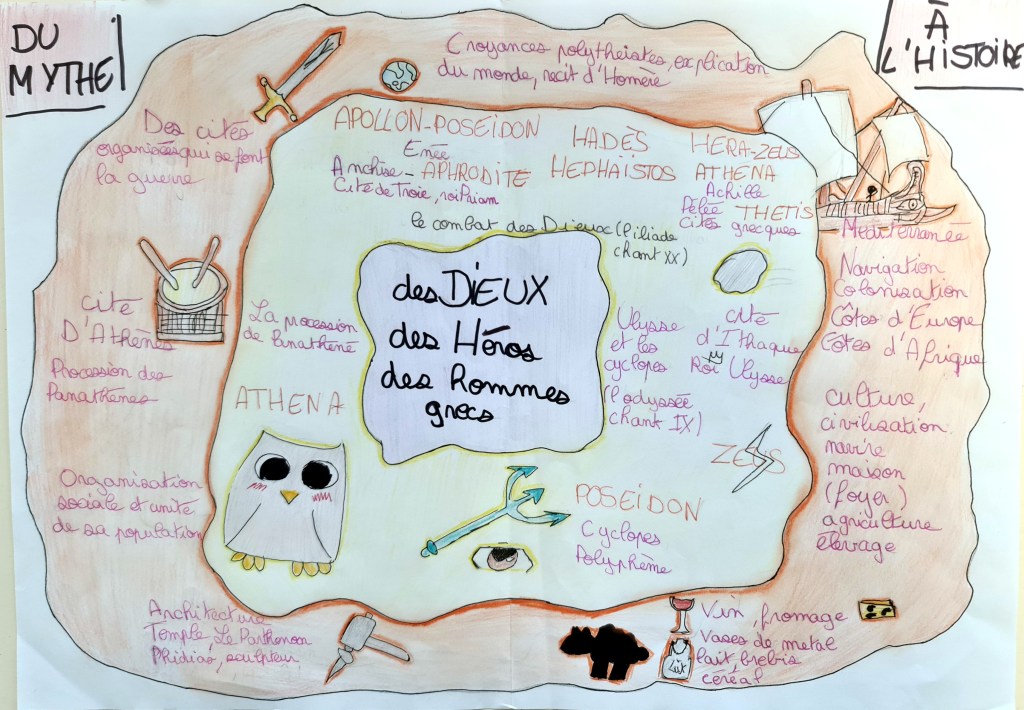 DU
MYTHE
À
L'HISTOIRE
Croyances polythéistes, explication
du monde, récit d'Homère
Des cités
organisées qui se font
la guerre
APOLLON-POSEIDON
Enée
Anchise - APHRODITE
Cité de Troie, roi Priam
HADÈS
HEPHAÏSTOS
HERA-ZEUS
ATHENA
Achille
Pélée THETIS
cités grecques
le combat des Dieux (l'iliade
chant XX)
Méditerranée
Navigation
Colonisation
Côtes d'Europe
Côtes d'Afrique
cité
D'Athènes
Procession des
Panathènes
La procession
de Panathéné
des DIEUX
des Héros
des Hommes
grecs
Ulysse
et les
cyclopes
(l'odyssée
chant IX)
cité
d'Ithaque
Roi Ulysse
ATHENA
ZEUS
culture,
civilisation
navire
maison
(foyer)
agriculture
élevage
Organisation
sociale et unité
de sa population
POSEIDON
Cyclopes
Polyphème
Architecture
Temple, Le Parthenon
Phidias, sculpteur
Vin, fromage
vases de metal
lait, brebis
céréal
Lait